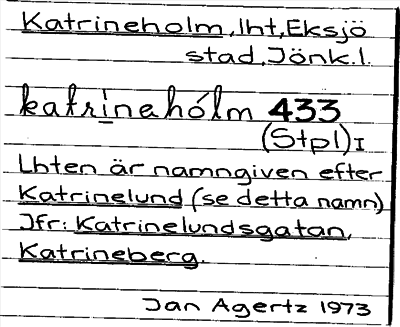 Katrineholm, lht, Eksjö
stad, Jönk. l.
katrinehólm 433
(Stpl) I
Lhten är namngiven efter
Katrinelund (se detta namn)
Jfr: Katrinelundsgatan,
Katrineberg.
Jan Agertz 1973